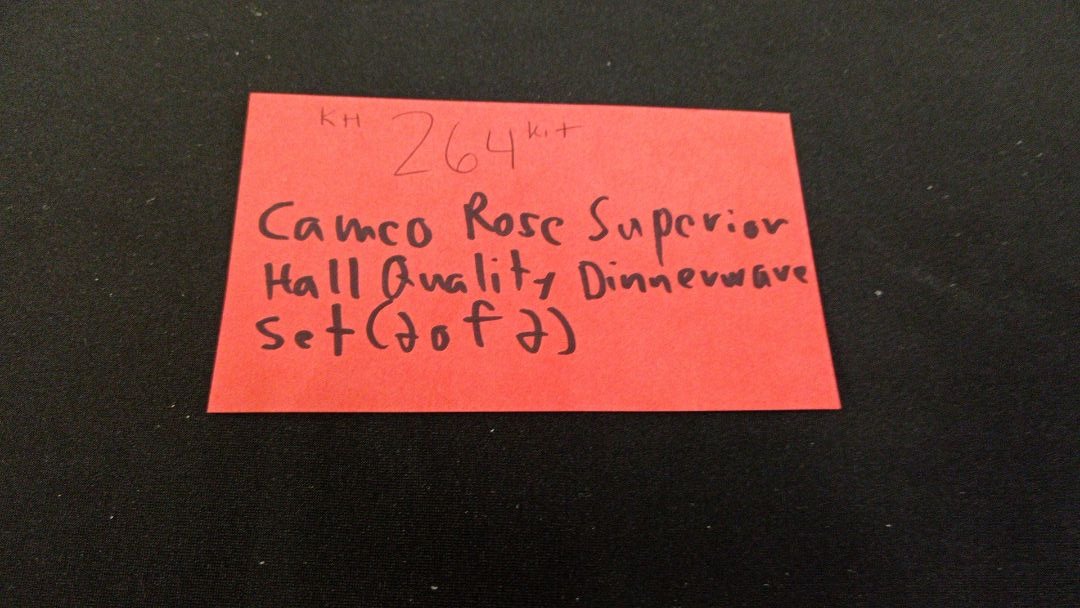 KH 264 Kit
Cameo Rose Superior
Hall Quality Dinnerware
Set (2 of 2)